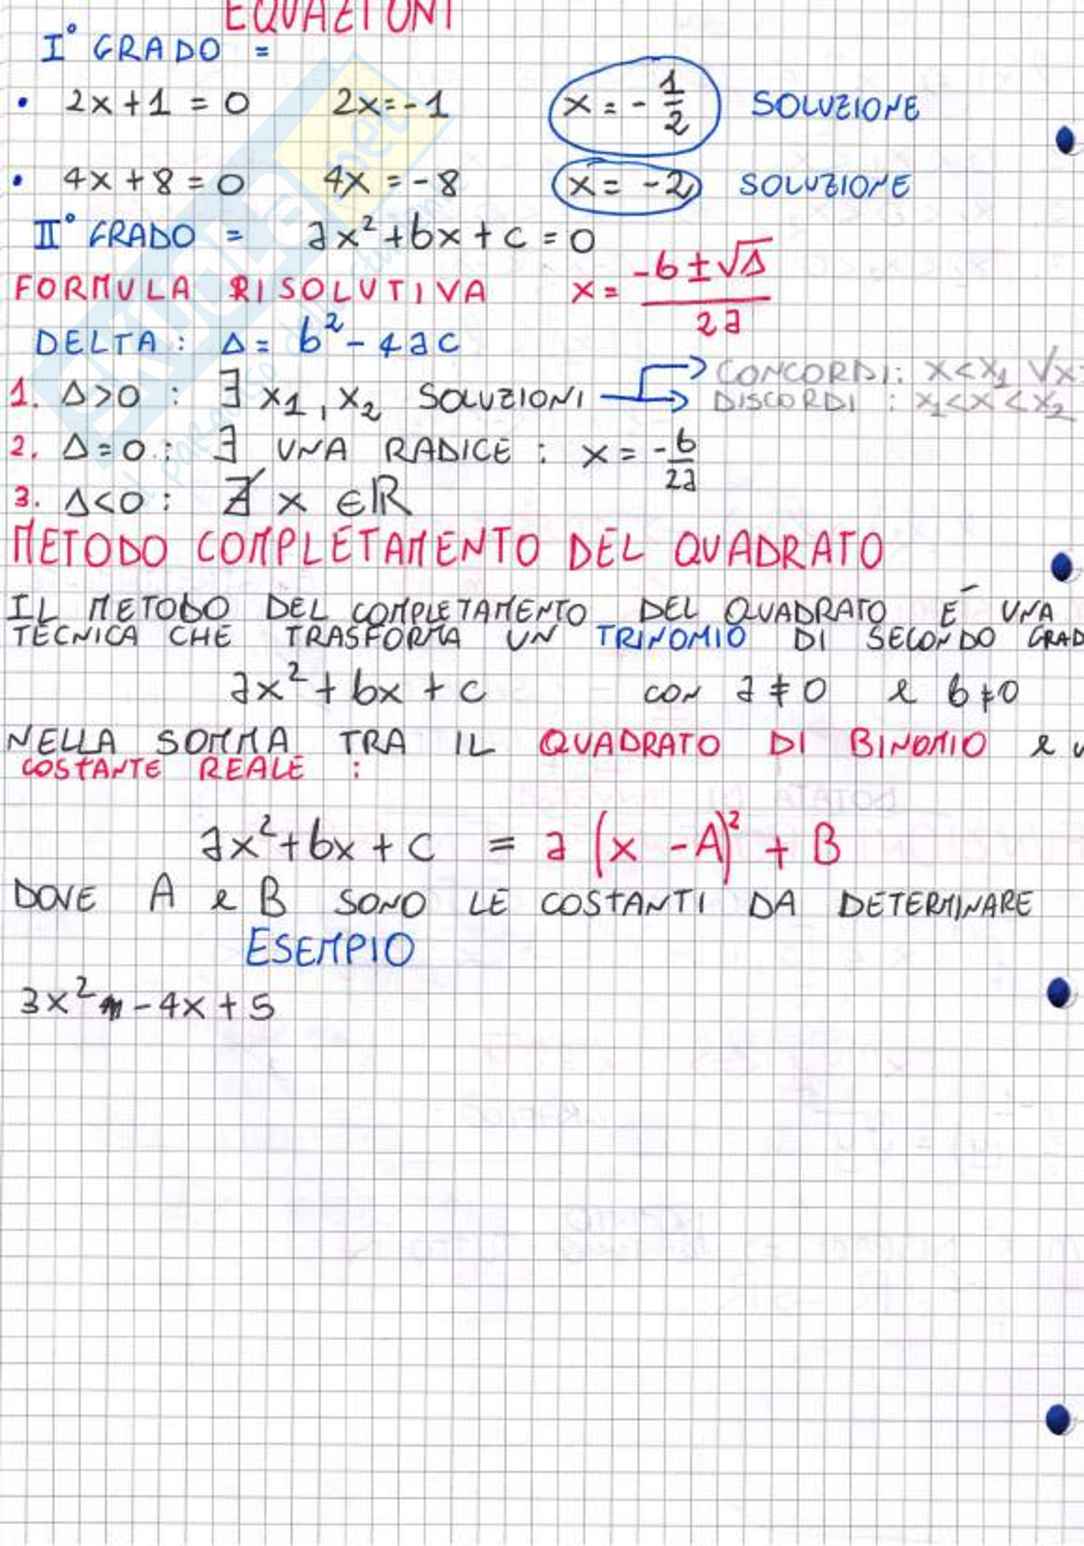 EQUAZIONI
I° GRADO =
• 2x+1 = 0 2x=-1 x = -1/2 SOLUZIONE
• 4x+8=0 4x=-8 x=-2 SOLUZIONE
II° GRADO = ax²+bx+c=0
FORMULA RISOLUTIVA x = (-b±√Δ)/2a
DELTA: Δ= b²-4ac
1. Δ>0 : ∃ x₁, x₂ SOLUZIONI → CONCORDI: x<x₁ √x
→ DISCORDI : x₁<x<x₂
2. Δ=0 : ∃ UNA RADICE : x = -b/2a
3. Δ<0 : ∄ x ∈ℝ
METODO COMPLETAMENTO DEL QUADRATO
IL METODO DEL COMPLETAMENTO DEL QUADRATO E' UNA
TECNICA CHE TRASFORMA UN TRINOMIO DI SECONDO GRAD
ax²+bx+c con a≠0 e b≠0
NELLA SOMMA TRA IL QUADRATO DI BINOMIO e
COSTANTE REALE :
ax²+bx+c = a (x -A)² + B
DOVE A e B SONO LE COSTANTI DA DETERMINARE
ESEMPIO
3x² -4x+5